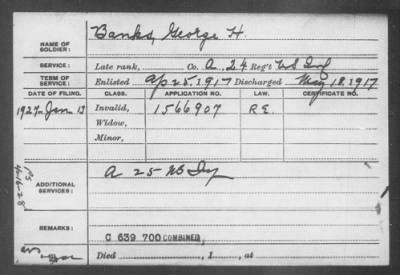 NAME OF SOLDIER: Banks, George H.
SERVICE: Late rank, Co. A, 24 Reg't U S Inf
TERM OF SERVICE: Enlisted Ap 25, 1917 Discharged May 18, 1917
DATE OF FILING. CLASS. APPLICATION NO. LAW. CERTIFICATE NO.
1927 Jan 13 Invalid, 1566907 R E.
Widow,
Minor,
ADDITIONAL SERVICES: A 25 US Inf
REMARKS: C 639 700 COMBINED
Died , 1 , at